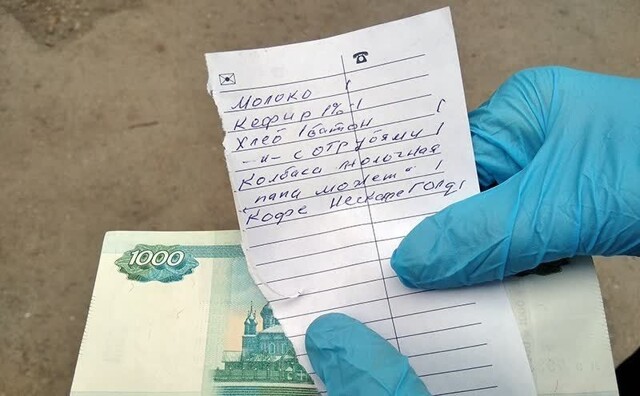 Молоко 1
Кефир 1% - 1
Хлеб 1 батон 1
—"— с отрубями 1
Колбаса молочная
"папа может" 1
Кофе Нескафе Голд 1
1000